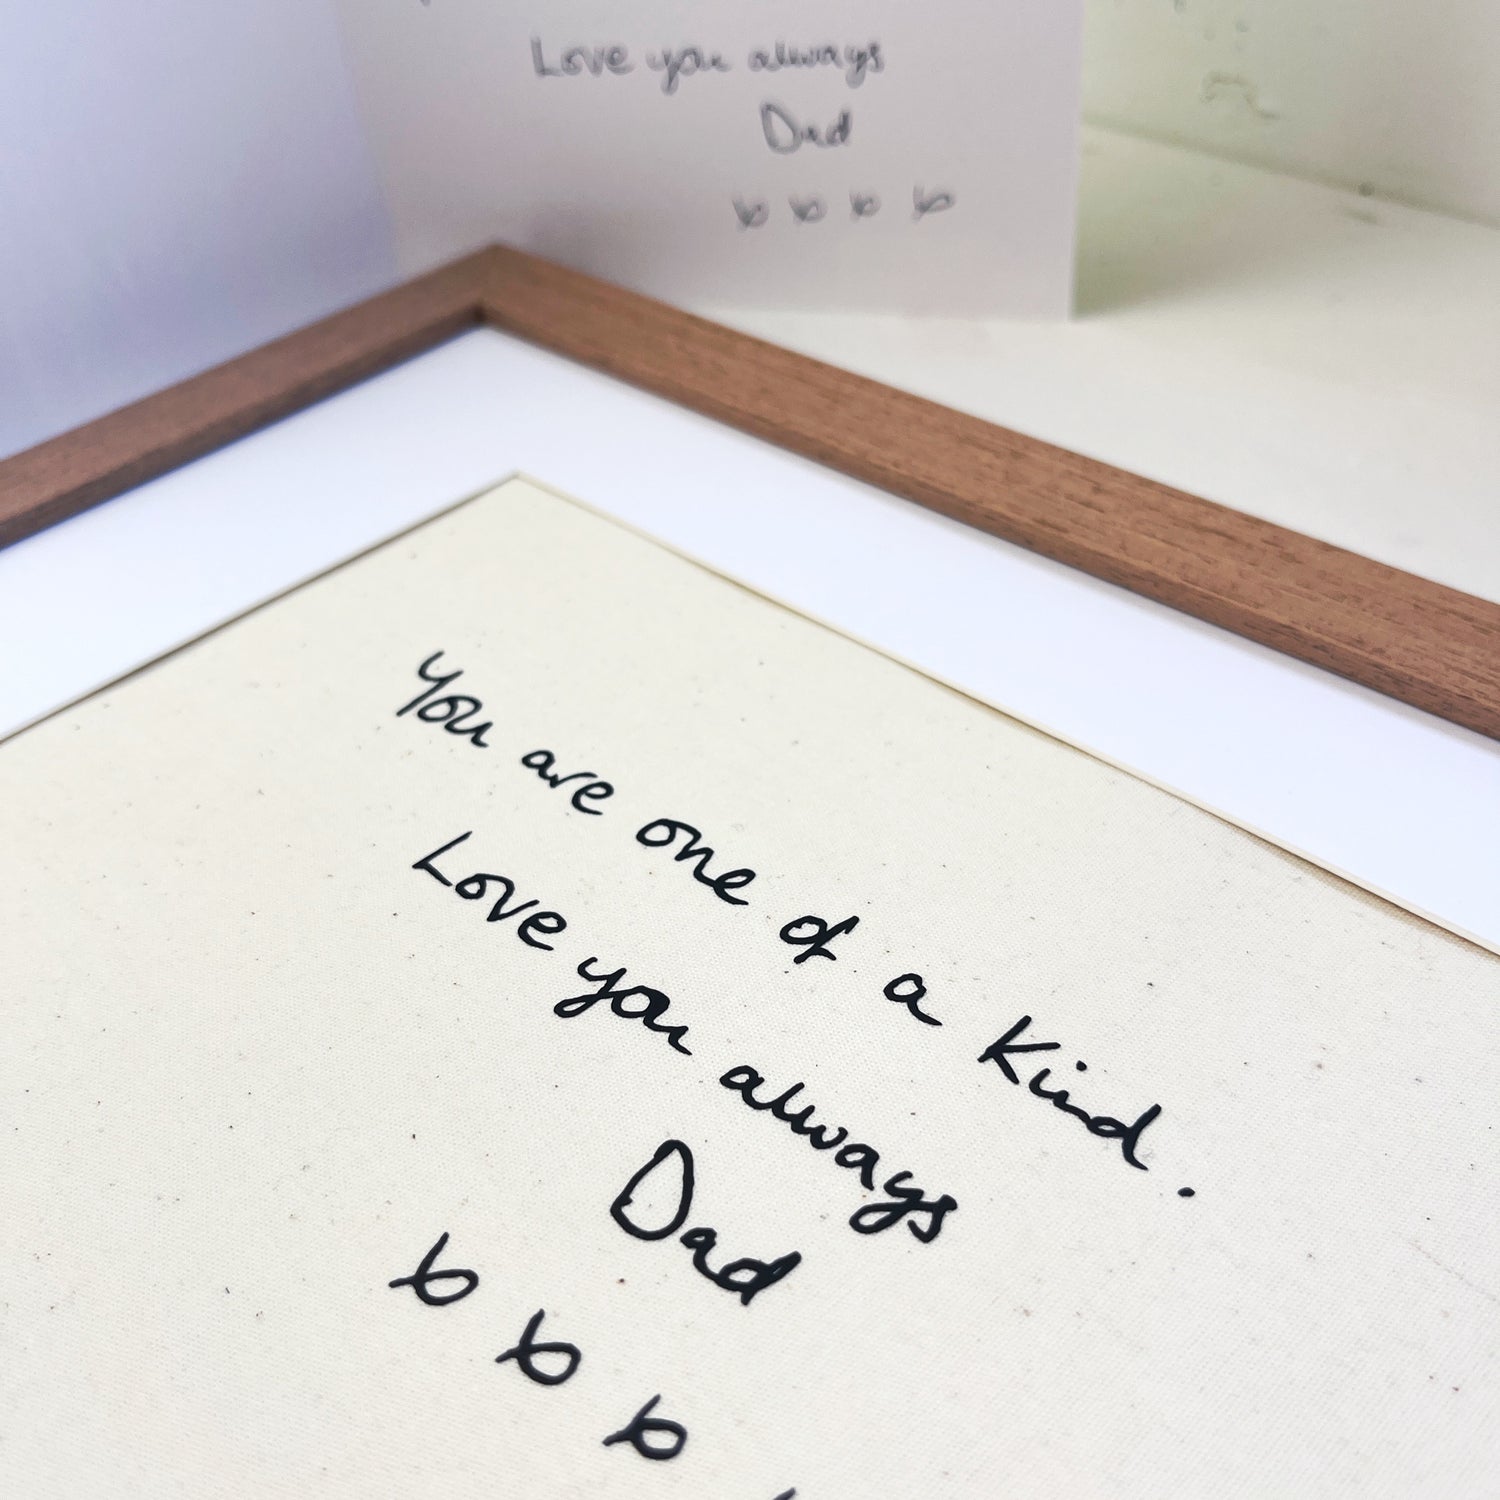 Love you always
Dad
x x x x
You are one of a Kind.
Love you always
Dad
x x x